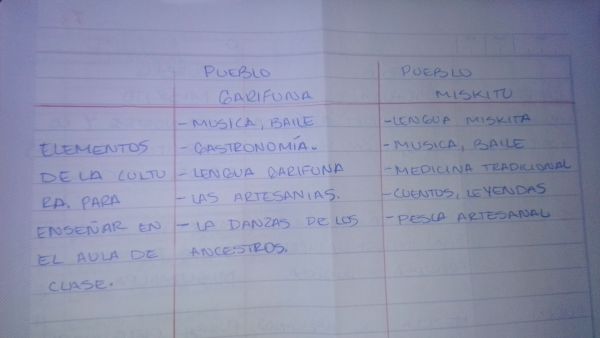 PUEBLO
GARIFUNA
PUEBLO
MISKITU
ELEMENTOS
DE LA CULTU
RA. PARA
ENSEÑAR EN
EL AULA DE
CLASE.
- MUSICA, BAILE
- GASTRONOMÍA.
- LENGUA GARIFUNA
- LAS ARTESANIAS.
- LA DANZAS DE LOS
ANCESTROS.
- LENGUA MISKITA
- MUSICA, BAILE
- MEDICINA TRADICIONAL
- CUENTOS, LEYENDAS
- PESCA ARTESANAL